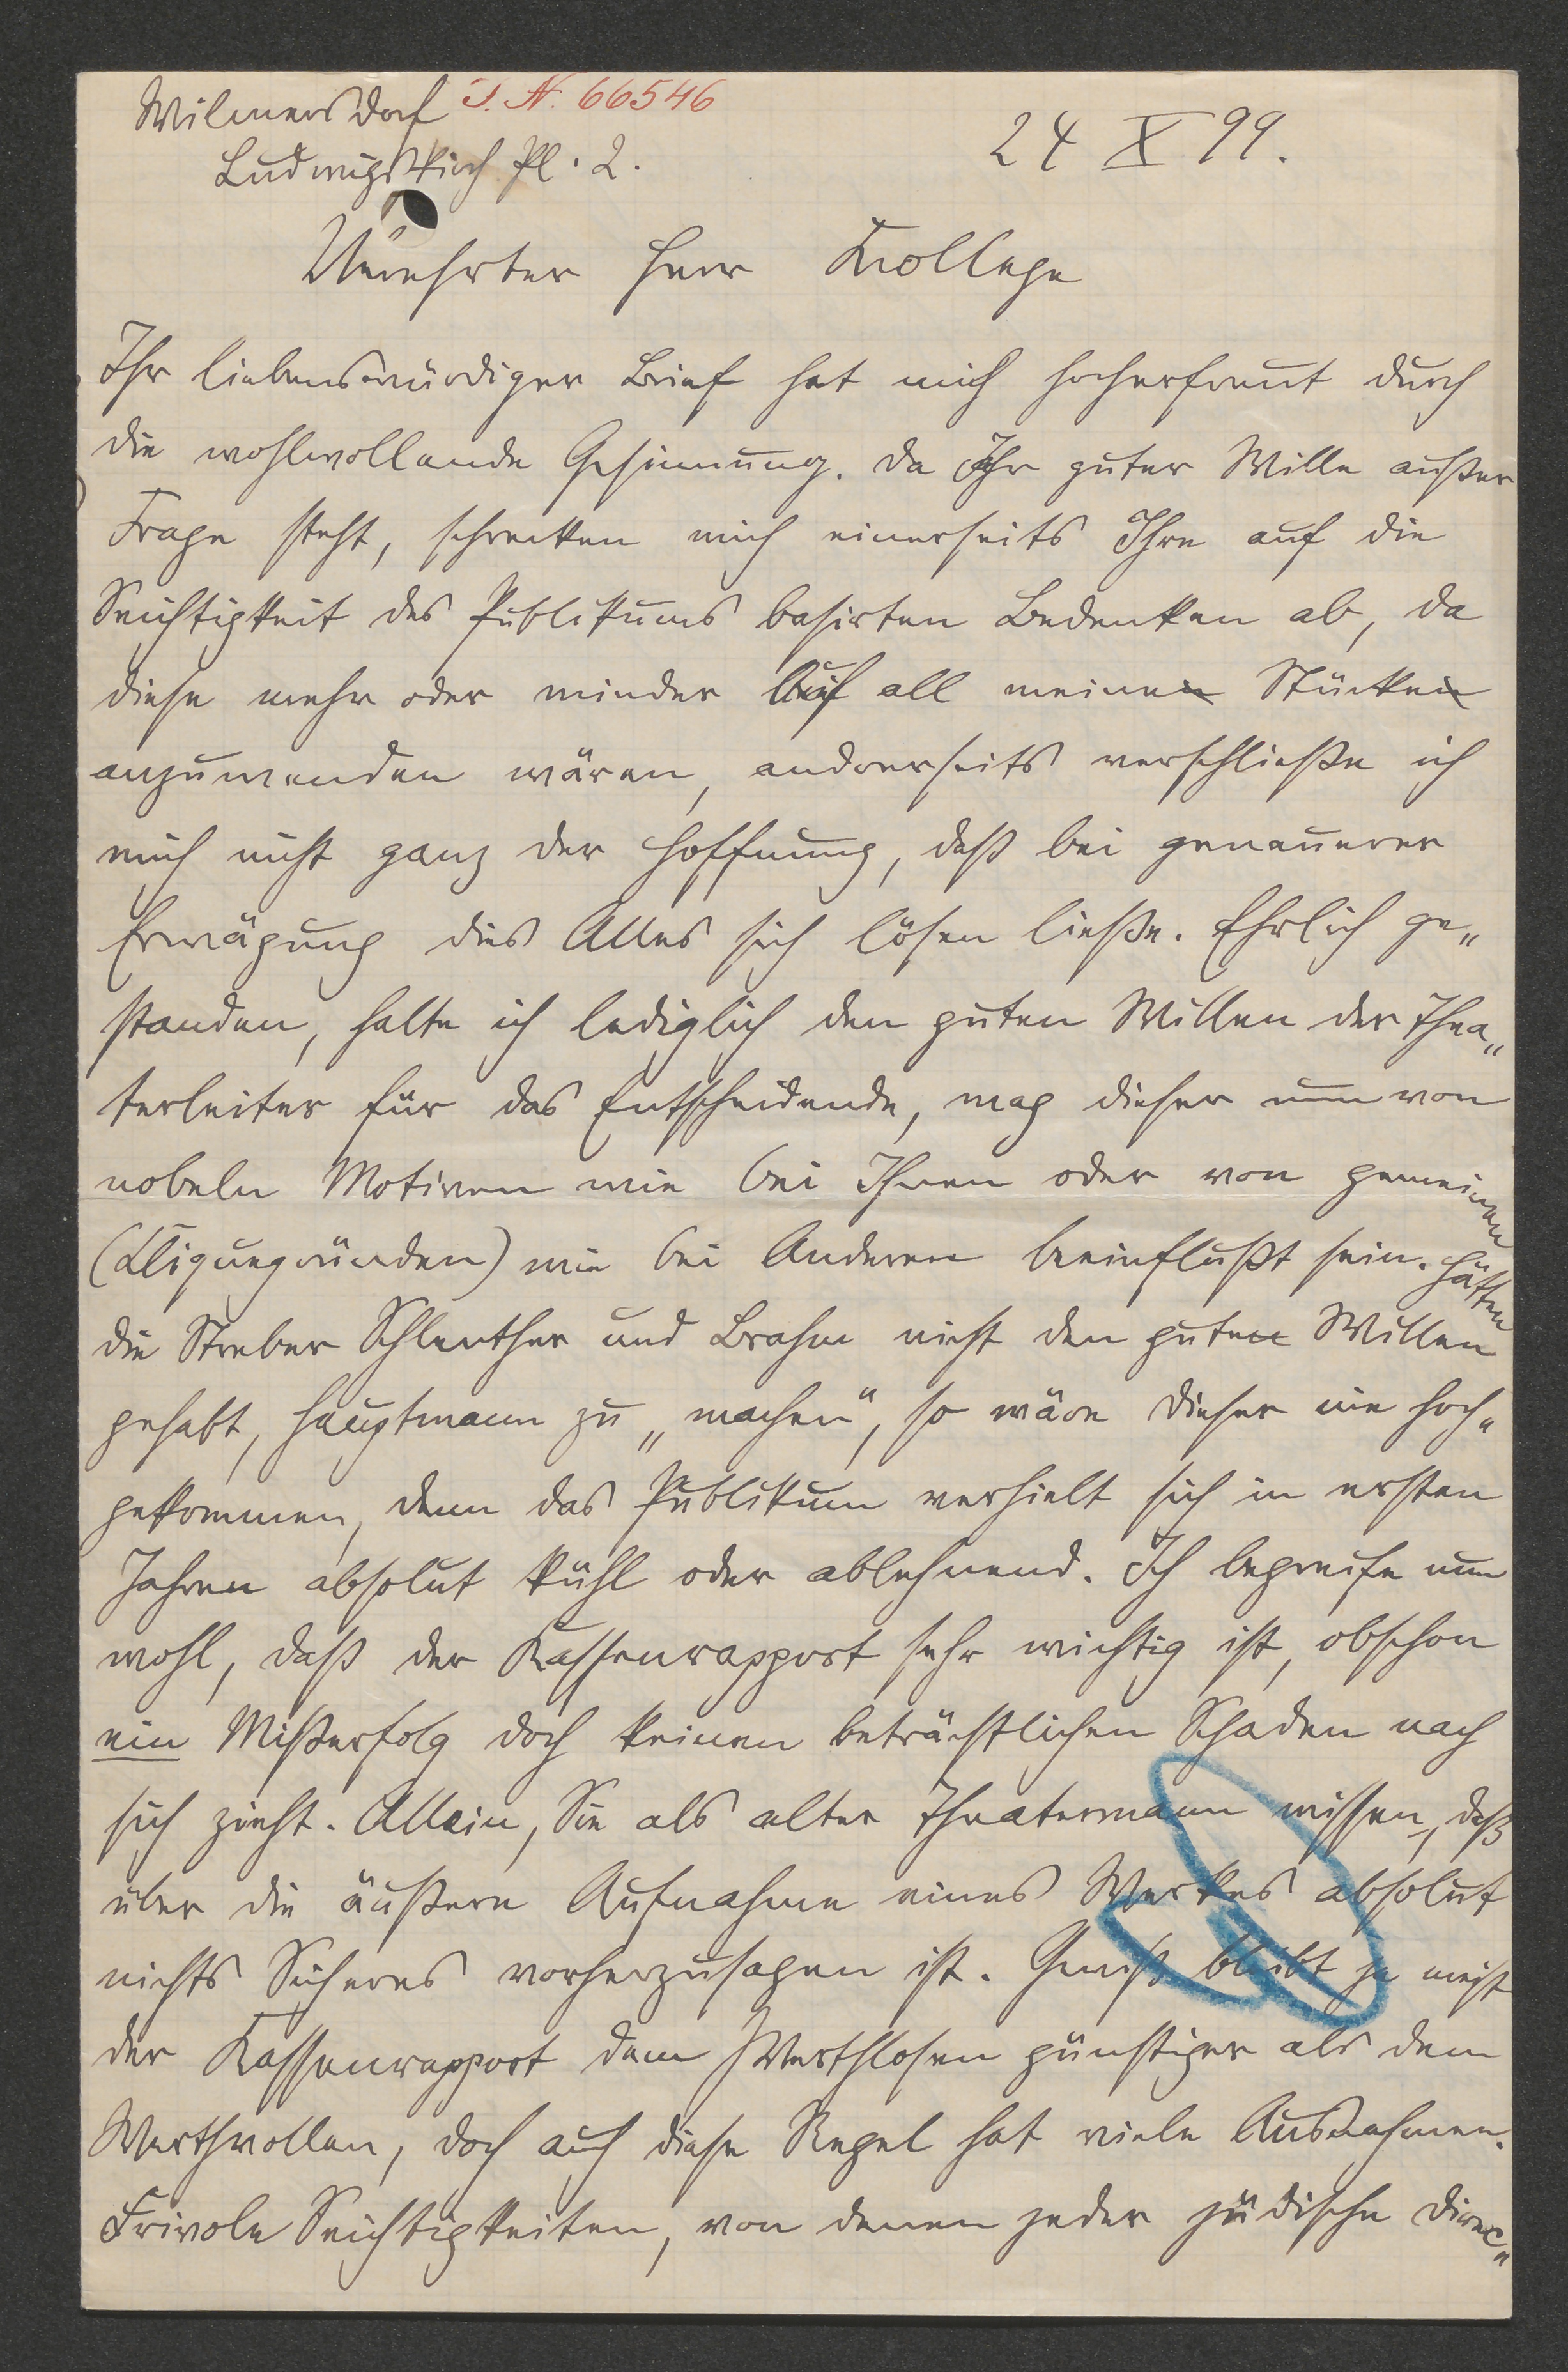 Wilmersdorf I. N. 66546
Ludwigskirch Pl. 2.
24 X 99.
Verehrter Herr Kollege
Ihr liebenswürdiger Brief hat mich hocherfreut durch
die wohlwollende Gesinnung. Da Ihr guter Wille außer
Frage steht, schrecken mich einerseits Ihre auf die
Seichtigkeit des Publikums basirten Bedenken ab, da
diese mehr oder minder auf all meinen Stücken
anzuwenden wären, andrerseits verschließe ich
mich nicht ganz der Hoffnung, daß bei genauerer
Erwägung dies Alles sich lösen ließe. Ehrlich ge„
standen, halte ich lediglich den guten Willen der Thea„
terleiter für das Entscheidende, mag dieser nun von
nobeln Motiven wie bei Ihnen oder von gemeinen
(Cliquegründen) wie bei Anderen beeinflußt sein. Hätten
die Streber Schlenther und Brahm nicht den guten Willen
gehabt, Hauptmann zu „machen“, so wäre dieser nie hoch„
gekommen, denn das Publikum verhielt sich in ersten
Jahren absolut kühl oder ablehnend. Ich begreife nun
wohl, daß der Kassenrapport sehr wichtig ist, obschon
ein Mißerfolg doch keinen beträchtlichen Schaden nach
sich zieht. Allein, Sie als alter Theatermann wissen, daß
über die äußere Aufnahme eines Werkes absolut
nichts Sicheres vorherzusagen ist. Gewiß bleibt ja meist
der Kassenrapport dem Werthlosen günstiger als dem
Werthvollen, doch auch diese Regel hat viele Ausnahmen.
Frivole Seichtigkeiten, von denen jeder jüdische Direc„